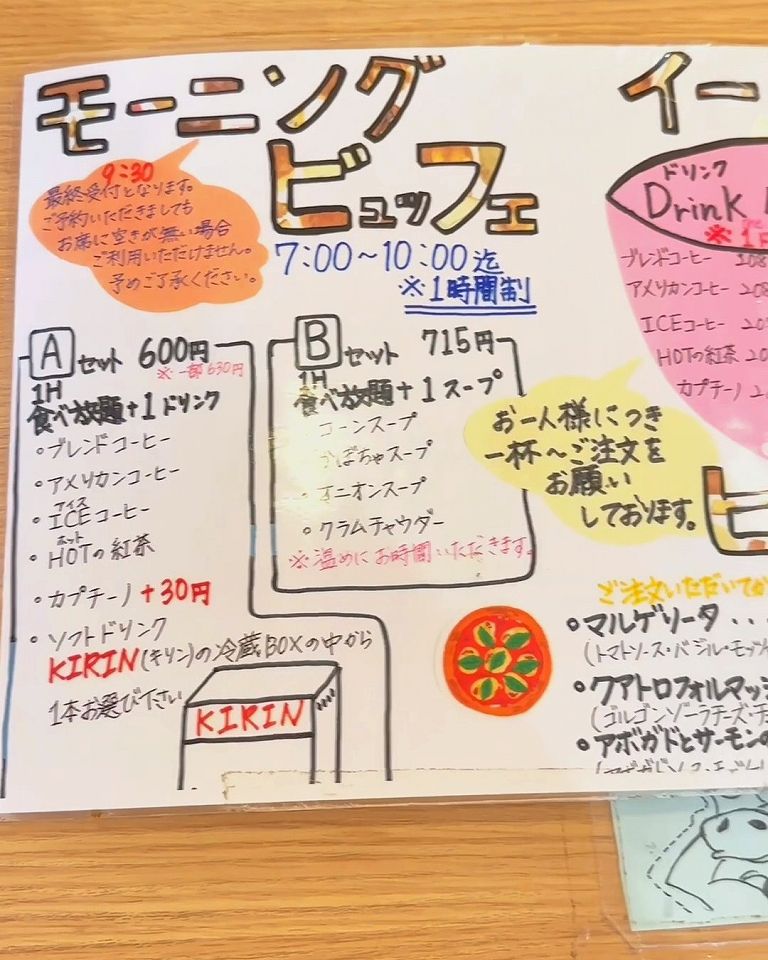 モーニング
ビュッフェ
9:30
最終受付となります。
ご予約いただきましても
お席に空きが無い場合
ご利用いただけません。
予めご了承ください。
7:00〜10:00迄
※1時間制
A セット 600円
※一部630円
1H
食べ放題+1ドリンク
・ブレンドコーヒー
・アメリカンコーヒー
アイス
・ICEコーヒー
ホット
・HOTの紅茶
・カプチーノ +30円
・ソフトドリンク
KIRIN(キリン)の冷蔵BOXの中から
1本お選び下さい
KIRIN
B セット 715円
1H
食べ放題+1スープ
・コーンスープ
・かぼちゃスープ
・オニオンスープ
・クラムチャウダー
※温めにお時間いただきます。
イー
ドリンク
Drink
ブレンドコーヒー
アメリカンコーヒー
ICEコーヒー
HOTの紅茶
カプチーノ
お一人様につき
一杯〜ご注文を
お願い
しております。
ピ
ご注文いただいてか
・マルゲリータ・・
(トマトソース・バジル・モッツ
・クアトロフォルマッジ
(ゴルゴンゾーラチーズ・チ
・アボガドとサーモンの